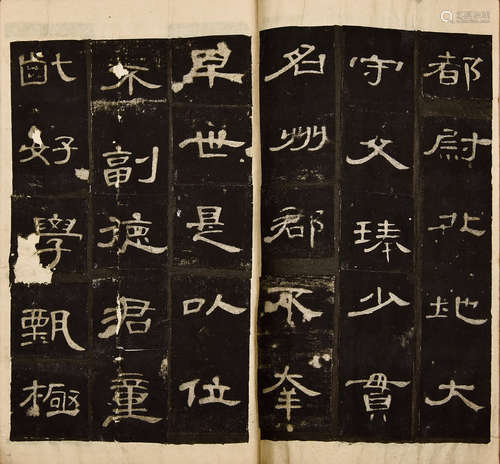 都尉北地大
守文珠少貫
名州郡不幸
早世是以位
不副德君童
齔好學甄極